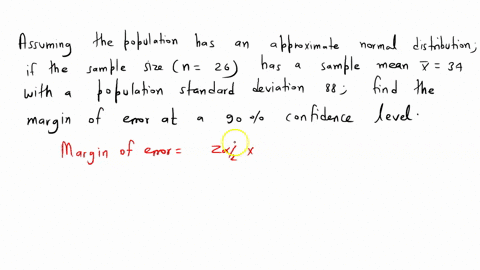 Assuming the population has an approximate normal distribution;
if the sample size (n = 26) has a sample mean x̄ = 34
with a population standard deviation 88; find the
margin of error at a 90% confidence level.
Margin of error = Zα/2 x